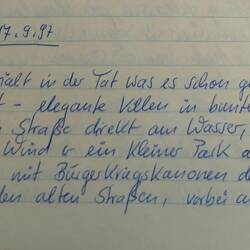 17.9.97
hält in der Tat was es schon ge
t – elegante Villen in bunte
Straße direkt am Wasser,
Wind & ein kleiner Park a
mit Bürgerkriegskanonen d
den alten Straßen, vorbei a